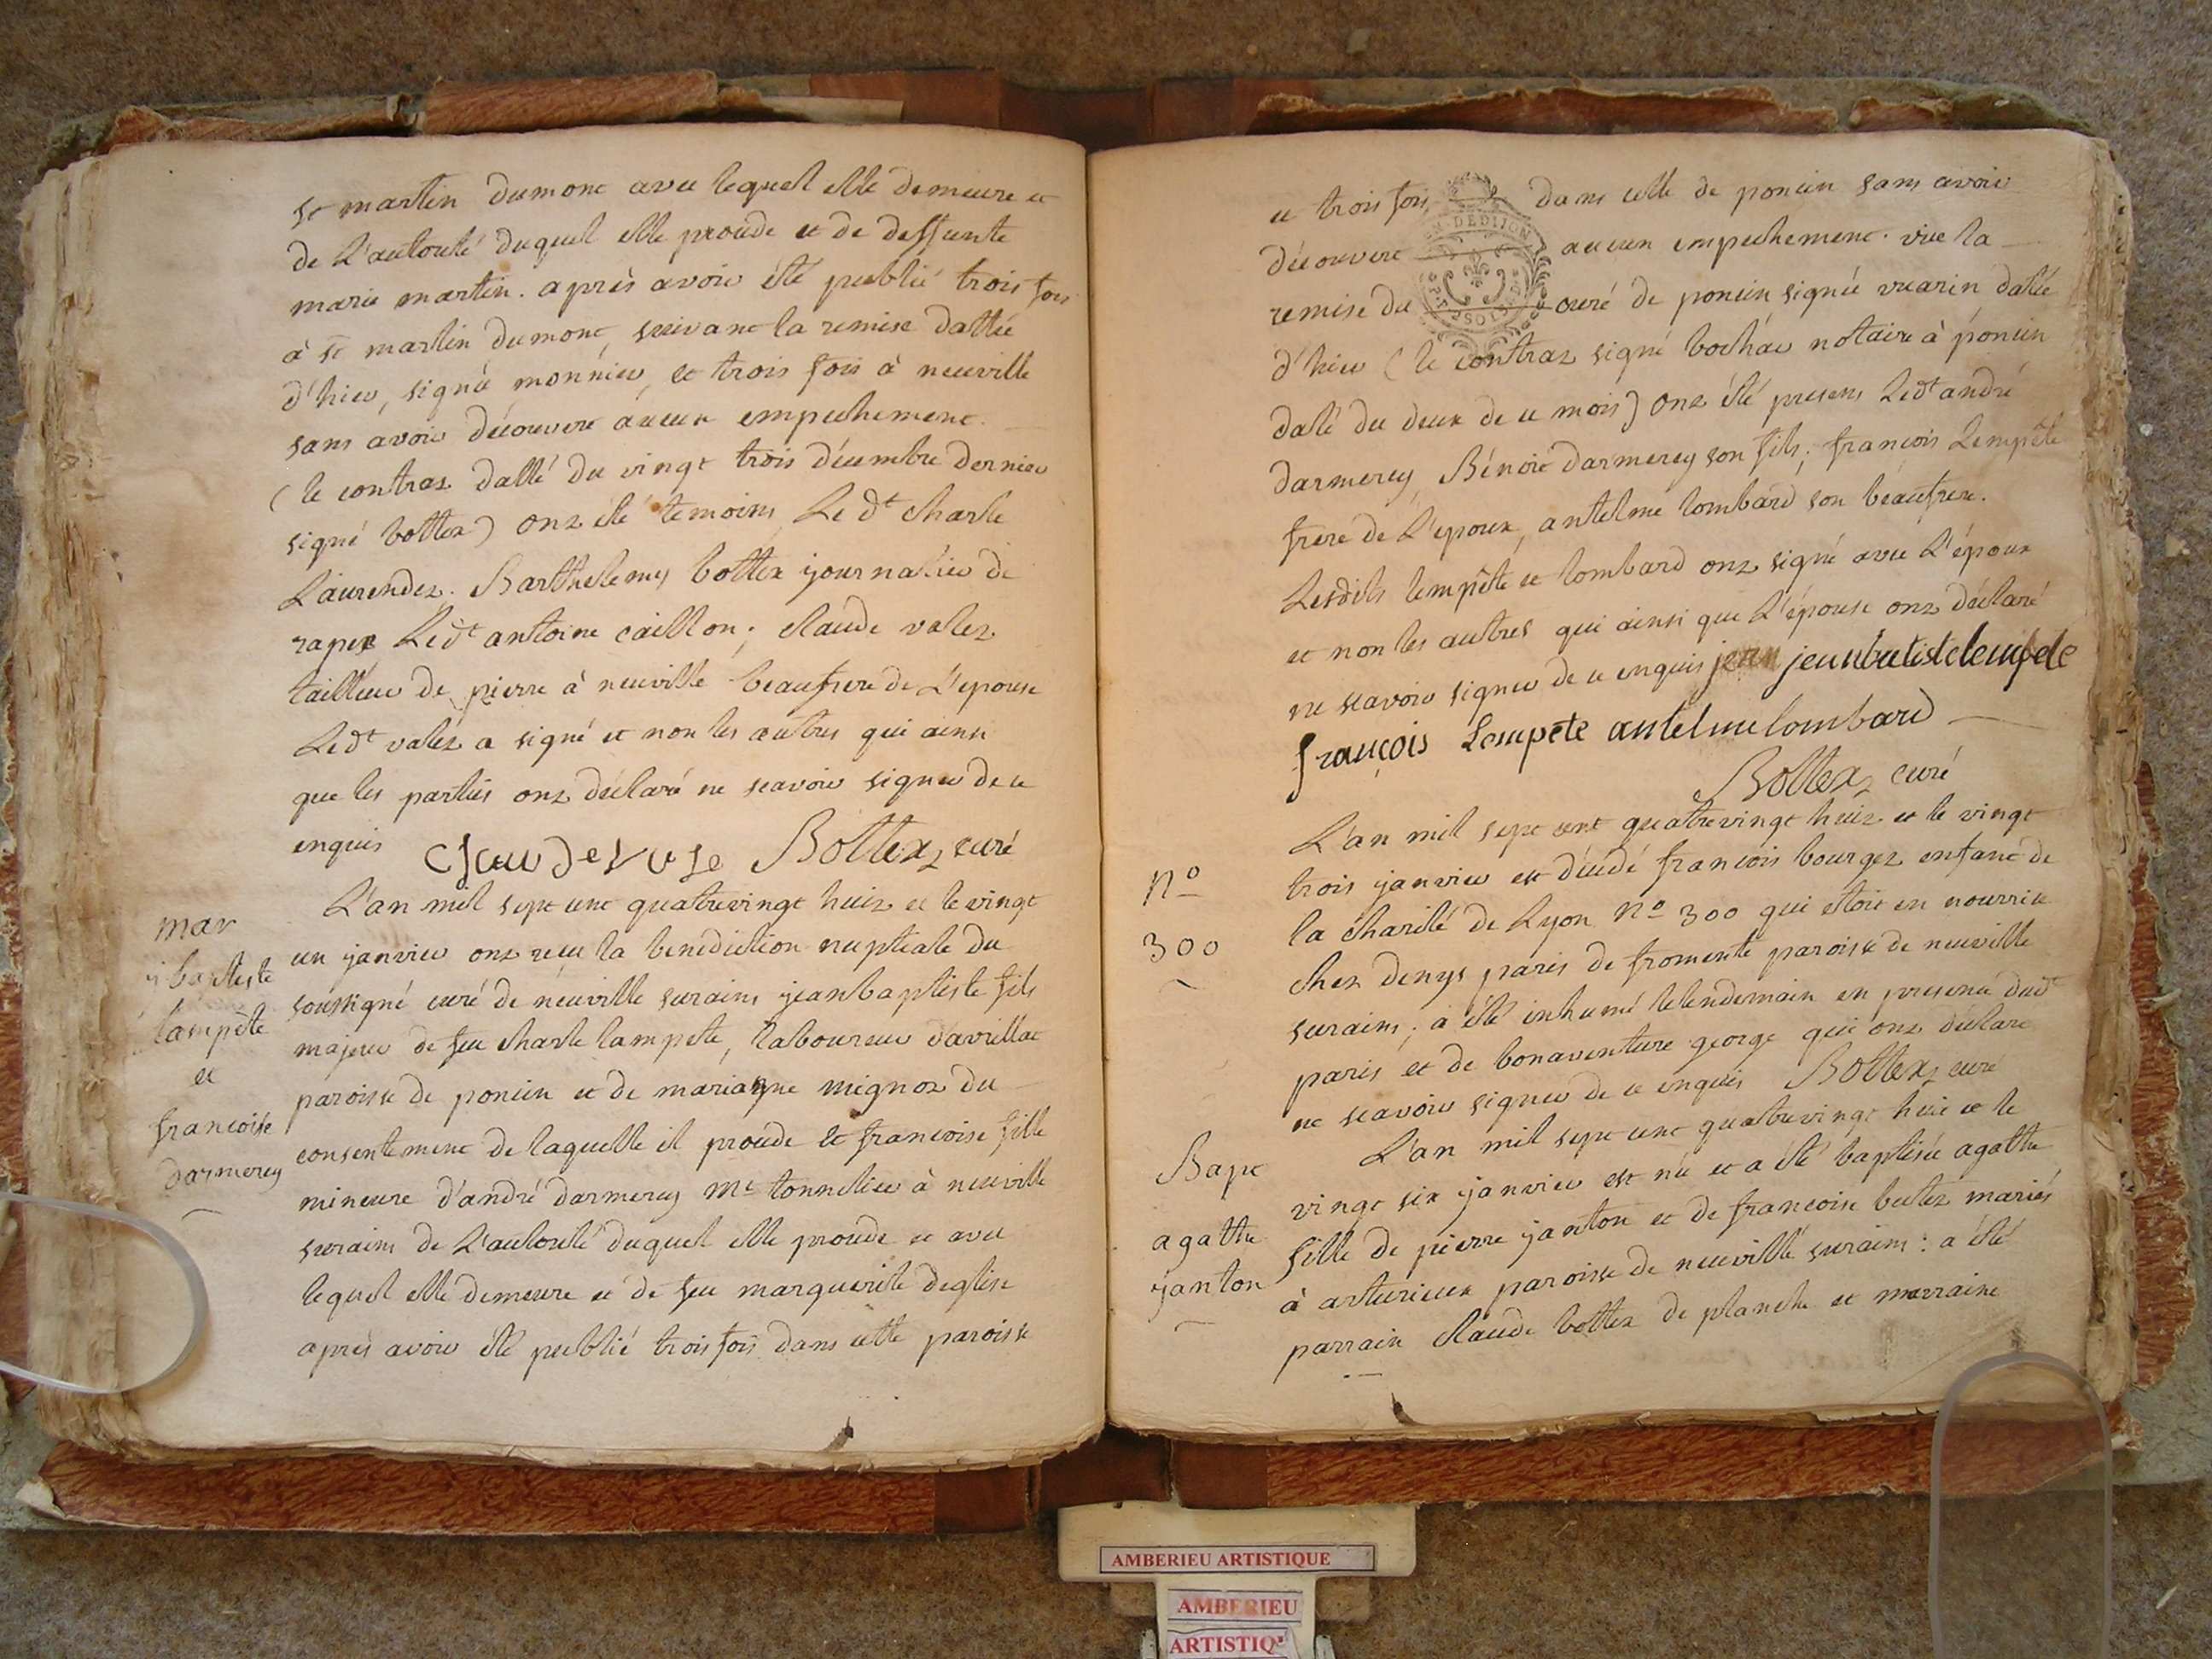 st martin dumont avec lequel elle demeure et
de L'autorité duquel elle procede et de deffunte
marie martin. après avoir été publié trois fois
à st martin dumont, suivant la remise dattée
d'hier, signée monnier, et trois fois à neuville
sans avoir découvert aucun empechement.
(le contrat datté du vingt trois décembre dernier
signé bottex) ont été temoins Le dt charle
Laurendez. Barthelemy bottex journalier de
Ledt antoine caillon; claude valez
tailleur de pierre à neuville beaufrere de L'epouse
Ledt valez a signé et non les autres qui ainsi
que les parties ont déclaré ne scavoir signer de ce
enquis Bottex, curé
mar
baptiste
lampête
et
francoise
darmerey
L'an mil sept cent quatrevingt huit et le vingt
un janvier ont reçu la benediction nuptiale du
soussigné curé de neuville surains jeanbaptiste fils
majeur de feu charle lampete, laboureur d'avrillat
paroisse de poncin et de marianne mignot du
consentement de laquelle il procede et francoise fille
mineure d'andré darmerey me tonnelier à neuville
surains de L'autorité duquel elle procede et avec
lequel elle demeure et de feu marguerite deglise
après avoir été publié trois fois dans cette paroisse
et trois fois dans celle de poncin sans avoir
découvert aucun empechement. vue la
remise du curé de poncin signée vuarin dattée
d'hier (le contrat signé bochar notaire à poncin
daté du deux de ce mois) ont été presens Ledt andré
darmerey Bénoit darmerey son fils; françois Lempête
frere de L'epoux, antelme lombard son beaufrere.
Lesdits lempête et lombard ont signé avec L'époux
et non les autres qui ainsi que L'épouse ont déclaré
ne scavoir signer de ce enquis jean jeanbatiste lempete
françois Lempete antelme lombard
Bottex, curé
No
300
L'an mil sept cent quatrevingt huit et le vingt
trois janvier est décédé francois bourget enfant de
la charité de Lyon No 300 qui etoit en nourrice
chez denys paris de fromente paroisse de neuville
surains; a été inhumé lelendemain en presence dudt
paris et de bonaventure george qui ont déclaré
ne scavoir signer de ce enquis Bottex, curé
Bapt
agathe
janton
L'an mil sept cent quatrevingt huit et le
vingt six janvier est née et a été baptisée agathe
fille de pierre janton et de francoise butez mariés
à arturieux paroisse de neuville surains: a été
parrain claude bottex de planche et marraine
DEDIJON
AMBERIEU ARTISTIQUE
AMBERIEU
ARTISTIQ